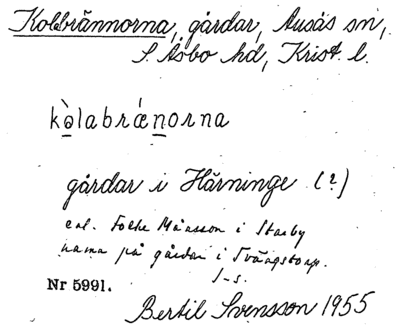 Kolbrännorna, gårdar, Ausås sn,
S. Åsbo hd, Krist. l.
kòlabrǽnorna
gårdar i Härninge (?)
enl. Folke Månsson i Starby
namn på gårdar i Tvängstorp.
S-s.
Nr 5991.
Bertil Svensson 1955